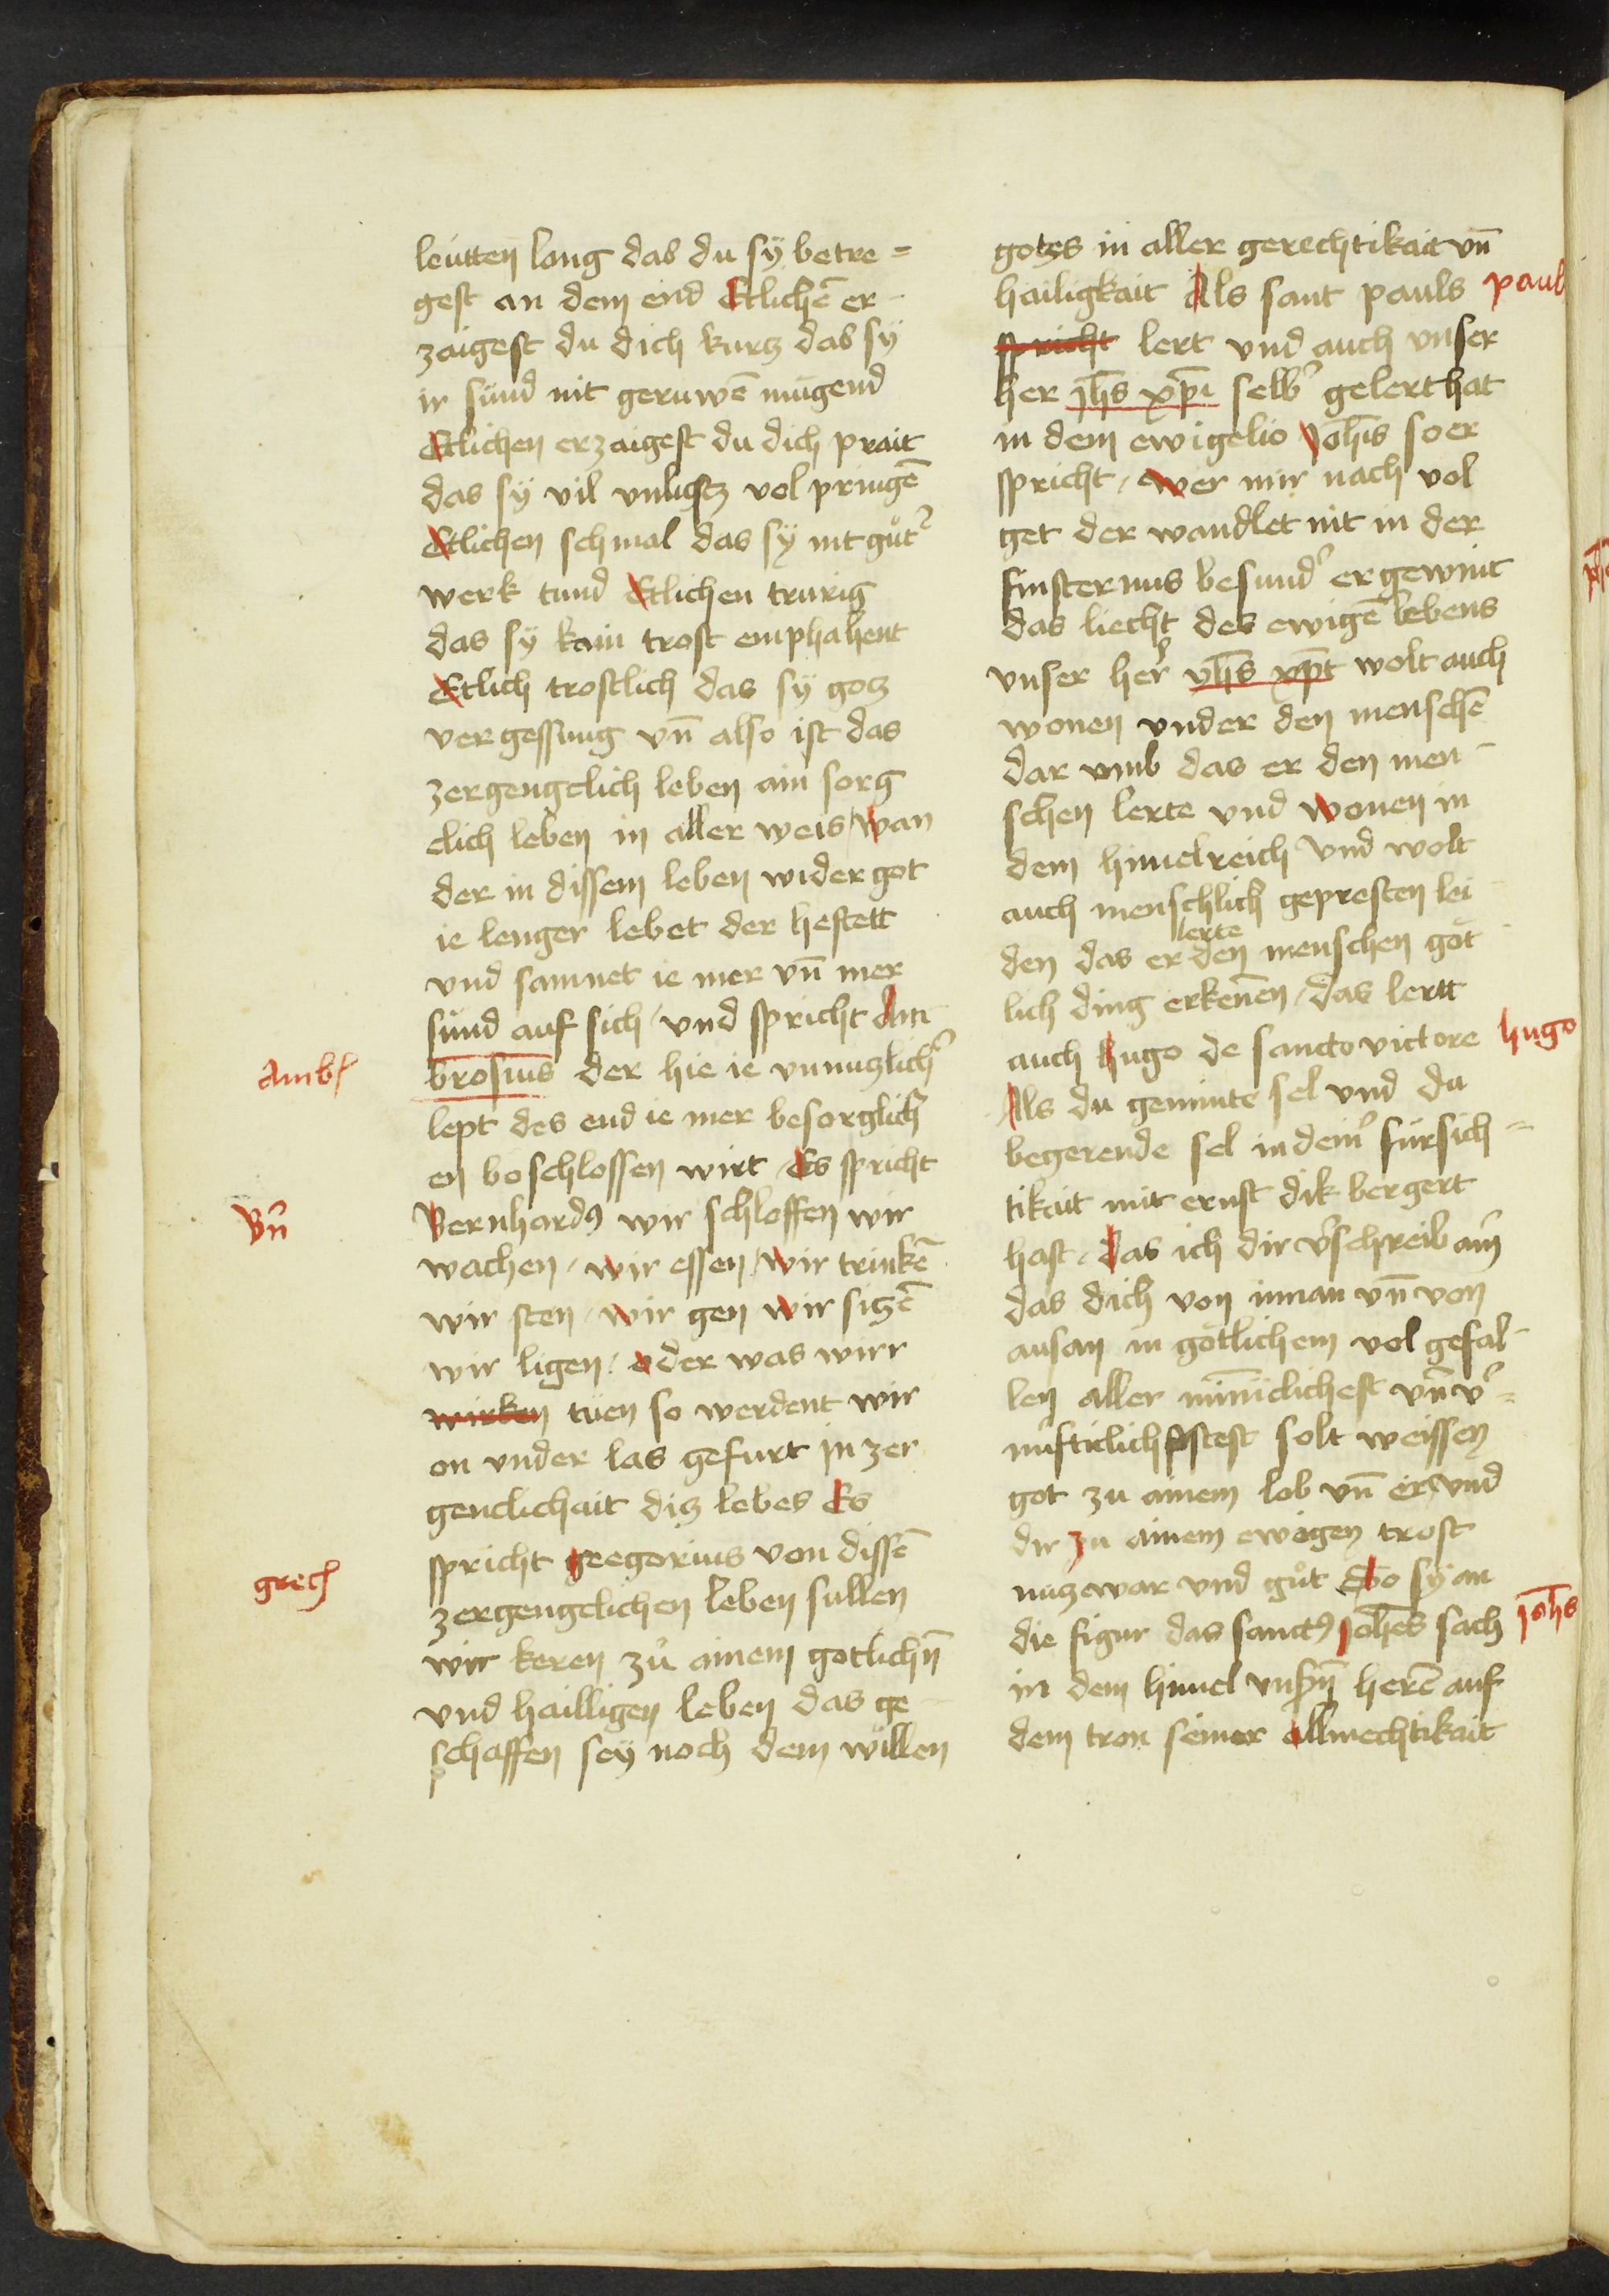 leütten lang das du sÿ betre=
gest an dem end Etlichē er-
zaigest du dich kurtz das sÿ
ir sünd nit geruwē mügend
Etlichen erzaigest du dich prait
das sÿ vil vnlustz vol pringē
Etlichen schmal das sÿ nit gůt᷑
werk tund Etlichen trurig
das sÿ kain trost emphahent
Etlich trostlich das sÿ gotz
vergessung vn̄ also ist das
zergengclich leben ain sorg
clich leben in aller weis / wan
der in dissem leben wider got
ie lenger lebet der heftett
vnd samnet ie mer vn̄ mer
sünd auf sich / vnd spricht Am
Amb
brosius der hie ie vnnutzlich᷑
lept des end ie mer besorglich
en boschlossen wirt / Es spricht
Bn̄
Bernhardꝰ wir schloffen wir
wachen / wir essen / wir trinkē
wir sten / wir gen wir sitzē
wir ligen / oder was wirr
wirken tüen so werdent wir
on vnder las gefurt in zer
genclichait ditz lebes Es
spricht gregorius von dissē
greg
zergengclichen leben sullen
wir keren zů ainem gotlichn̄
vnd hailligen leben das ge
schaffen seÿ noch dem willen
gotzs in aller gerechtikait vn̄
hailigkait Als sant pauls
paul
spricht lert vnd auch vnser
her jh̄s xp̄i selb᷑ gelert hat
in dem ewigelio Joh̄is so er
spricht / wer mir nach vol
get der wandlet nit in der
finsternus besund᷑ er gewint
das liecht des ewigē lebens
vnser her᷑ yh̄s xp̄t wolt auch
wonen vnder den menschē
dar vmb das er den men-
schen lerte vnd wonen in
dem himelreich vnd wolt
auch menschlich gepresten lei
den das er lerte den menschen göt
lich ding erkenen / das lertt
auch hugo de sancto victore
hugo
Als du geminte sel vnd du
begerende sel in dein᷑ fürsich=
tikait mit ernst dik bergert
hast / das ich dir v᷑schreib ain᷑
das dich von innan vn̄ von
ausan in götlichem vol gefal-
len aller min̄iclichest vn̄ v᷑=
nüfticlich stest solt weissen
got zu ainem lob vn̄ er / vnd
dir zu ainem ewigen trost
nutz war vnd gůt So sÿ an
die figur das sanctꝰ joh̄es sach
joh̄s
in dem himel vnsn̄ herē auf
dem tron seiner allmechtikait